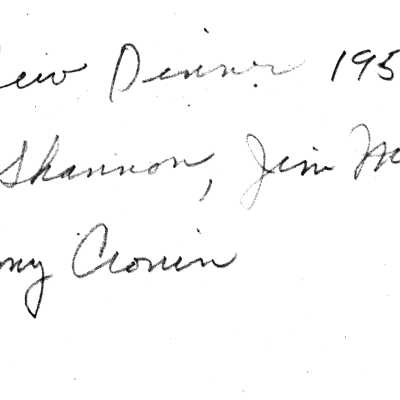 Dinner 195
Shannon, Jim M
ony Cronin